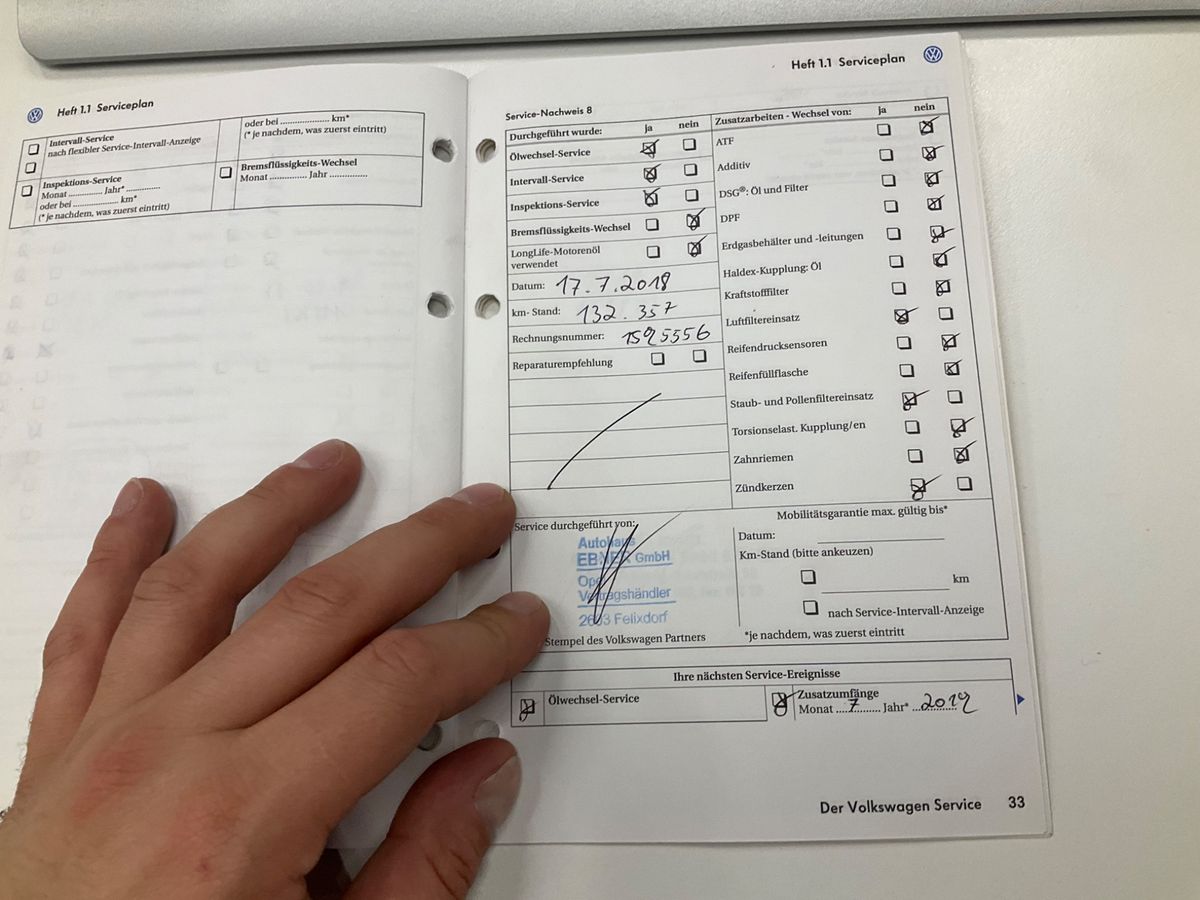 Heft 1.1 Serviceplan
Intervall-Service
nach flexibler Service-Intervall-Anzeige
oder bei .................... km*
(* je nachdem, was zuerst eintritt)
Inspektions-Service
Monat ............ Jahr* ............
oder bei .................... km*
(* je nachdem, was zuerst eintritt)
Bremsflüssigkeits-Wechsel
Monat ............. Jahr .............
Heft 1.1 Serviceplan
Service-Nachweis 8
Durchgeführt wurde: ja nein
Ölwechsel-Service
Intervall-Service
Inspektions-Service
Bremsflüssigkeits-Wechsel
LongLife-Motorenöl
verwendet
Datum: 17.7.2018
km- Stand: 132.357
Rechnungsnummer: 1595556
Reparaturempfehlung
Zusatzarbeiten - Wechsel von: ja nein
ATF
Additiv
DSG®: Öl und Filter
DPF
Erdgasbehälter und -leitungen
Haldex-Kupplung: Öl
Kraftstofffilter
Luftfiltereinsatz
Reifendrucksensoren
Reifenfüllflasche
Staub- und Pollenfiltereinsatz
Torsionselast. Kupplung/en
Zahnriemen
Zündkerzen
Service durchgeführt von:
Autohaus
EBNER GmbH
Opel
Vertragshändler
2603 Felixdorf
Stempel des Volkswagen Partners
Mobilitätsgarantie max. gültig bis*
Datum:
Km-Stand (bitte ankeuzen)
km
nach Service-Intervall-Anzeige
*je nachdem, was zuerst eintritt
Ihre nächsten Service-Ereignisse
Ölwechsel-Service
Zusatzumfänge
Monat ....7.......... Jahr* ...2019
Der Volkswagen Service 33